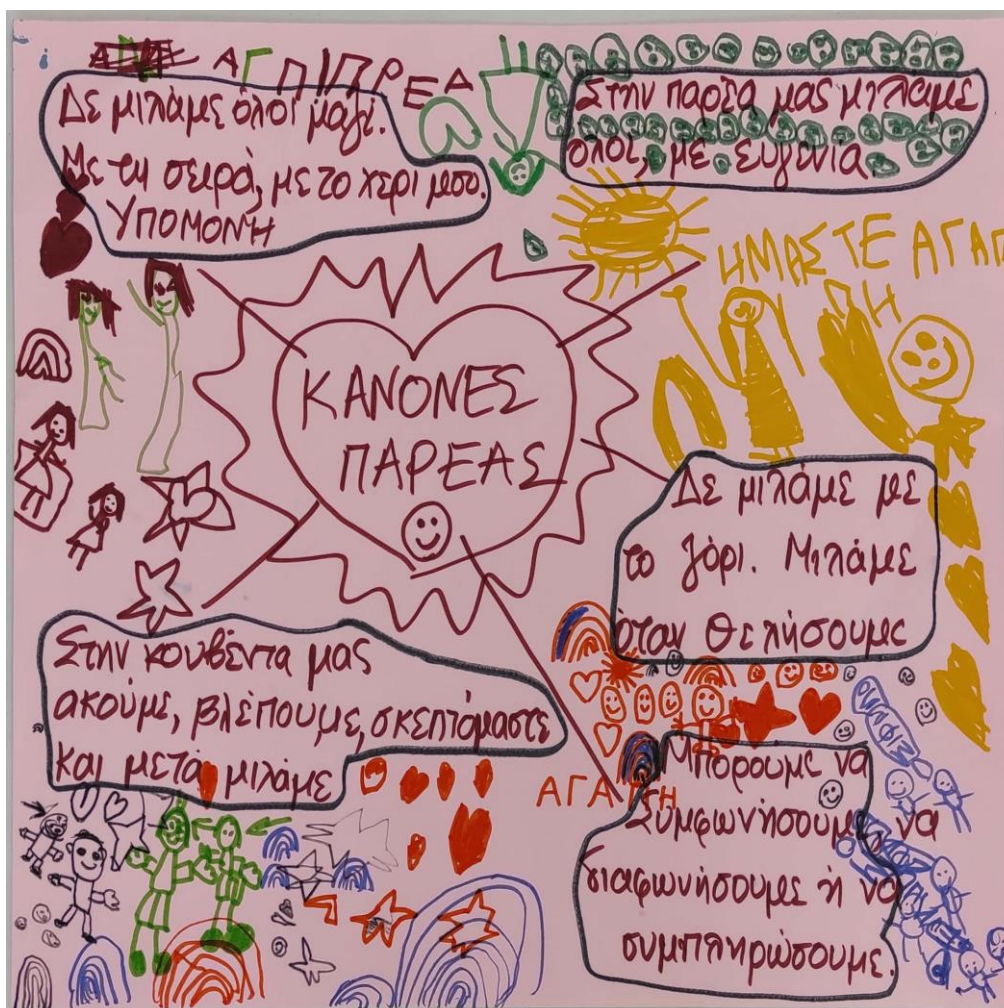 ΑΓ
Δε μιλάμε όλοι μαζί.
Με τη σειρά, με το χέρι μου.
ΥΠΟΜΟΝΗ
Στην παρέα μας μιλάμε
όλοι, με ευγένια.
ΗΜΑΣΤΕ ΑΓΑΠ
Η
ΚΑΝΟΝΕΣ
ΠΑΡΕΑΣ
Δε μιλάμε με
το ζόρι. Μιλάμε
όταν θελήσουμε
Στην κουβέντα μας
ακούμε, βλέπουμε, σκεπτόμαστε
και μετά μιλάμε
ΑΓΑΠΗ
Μπορουμε να
συμφωνήσουμε, να
διαφωνήσουμε ή να
συμπληρώσουμε.